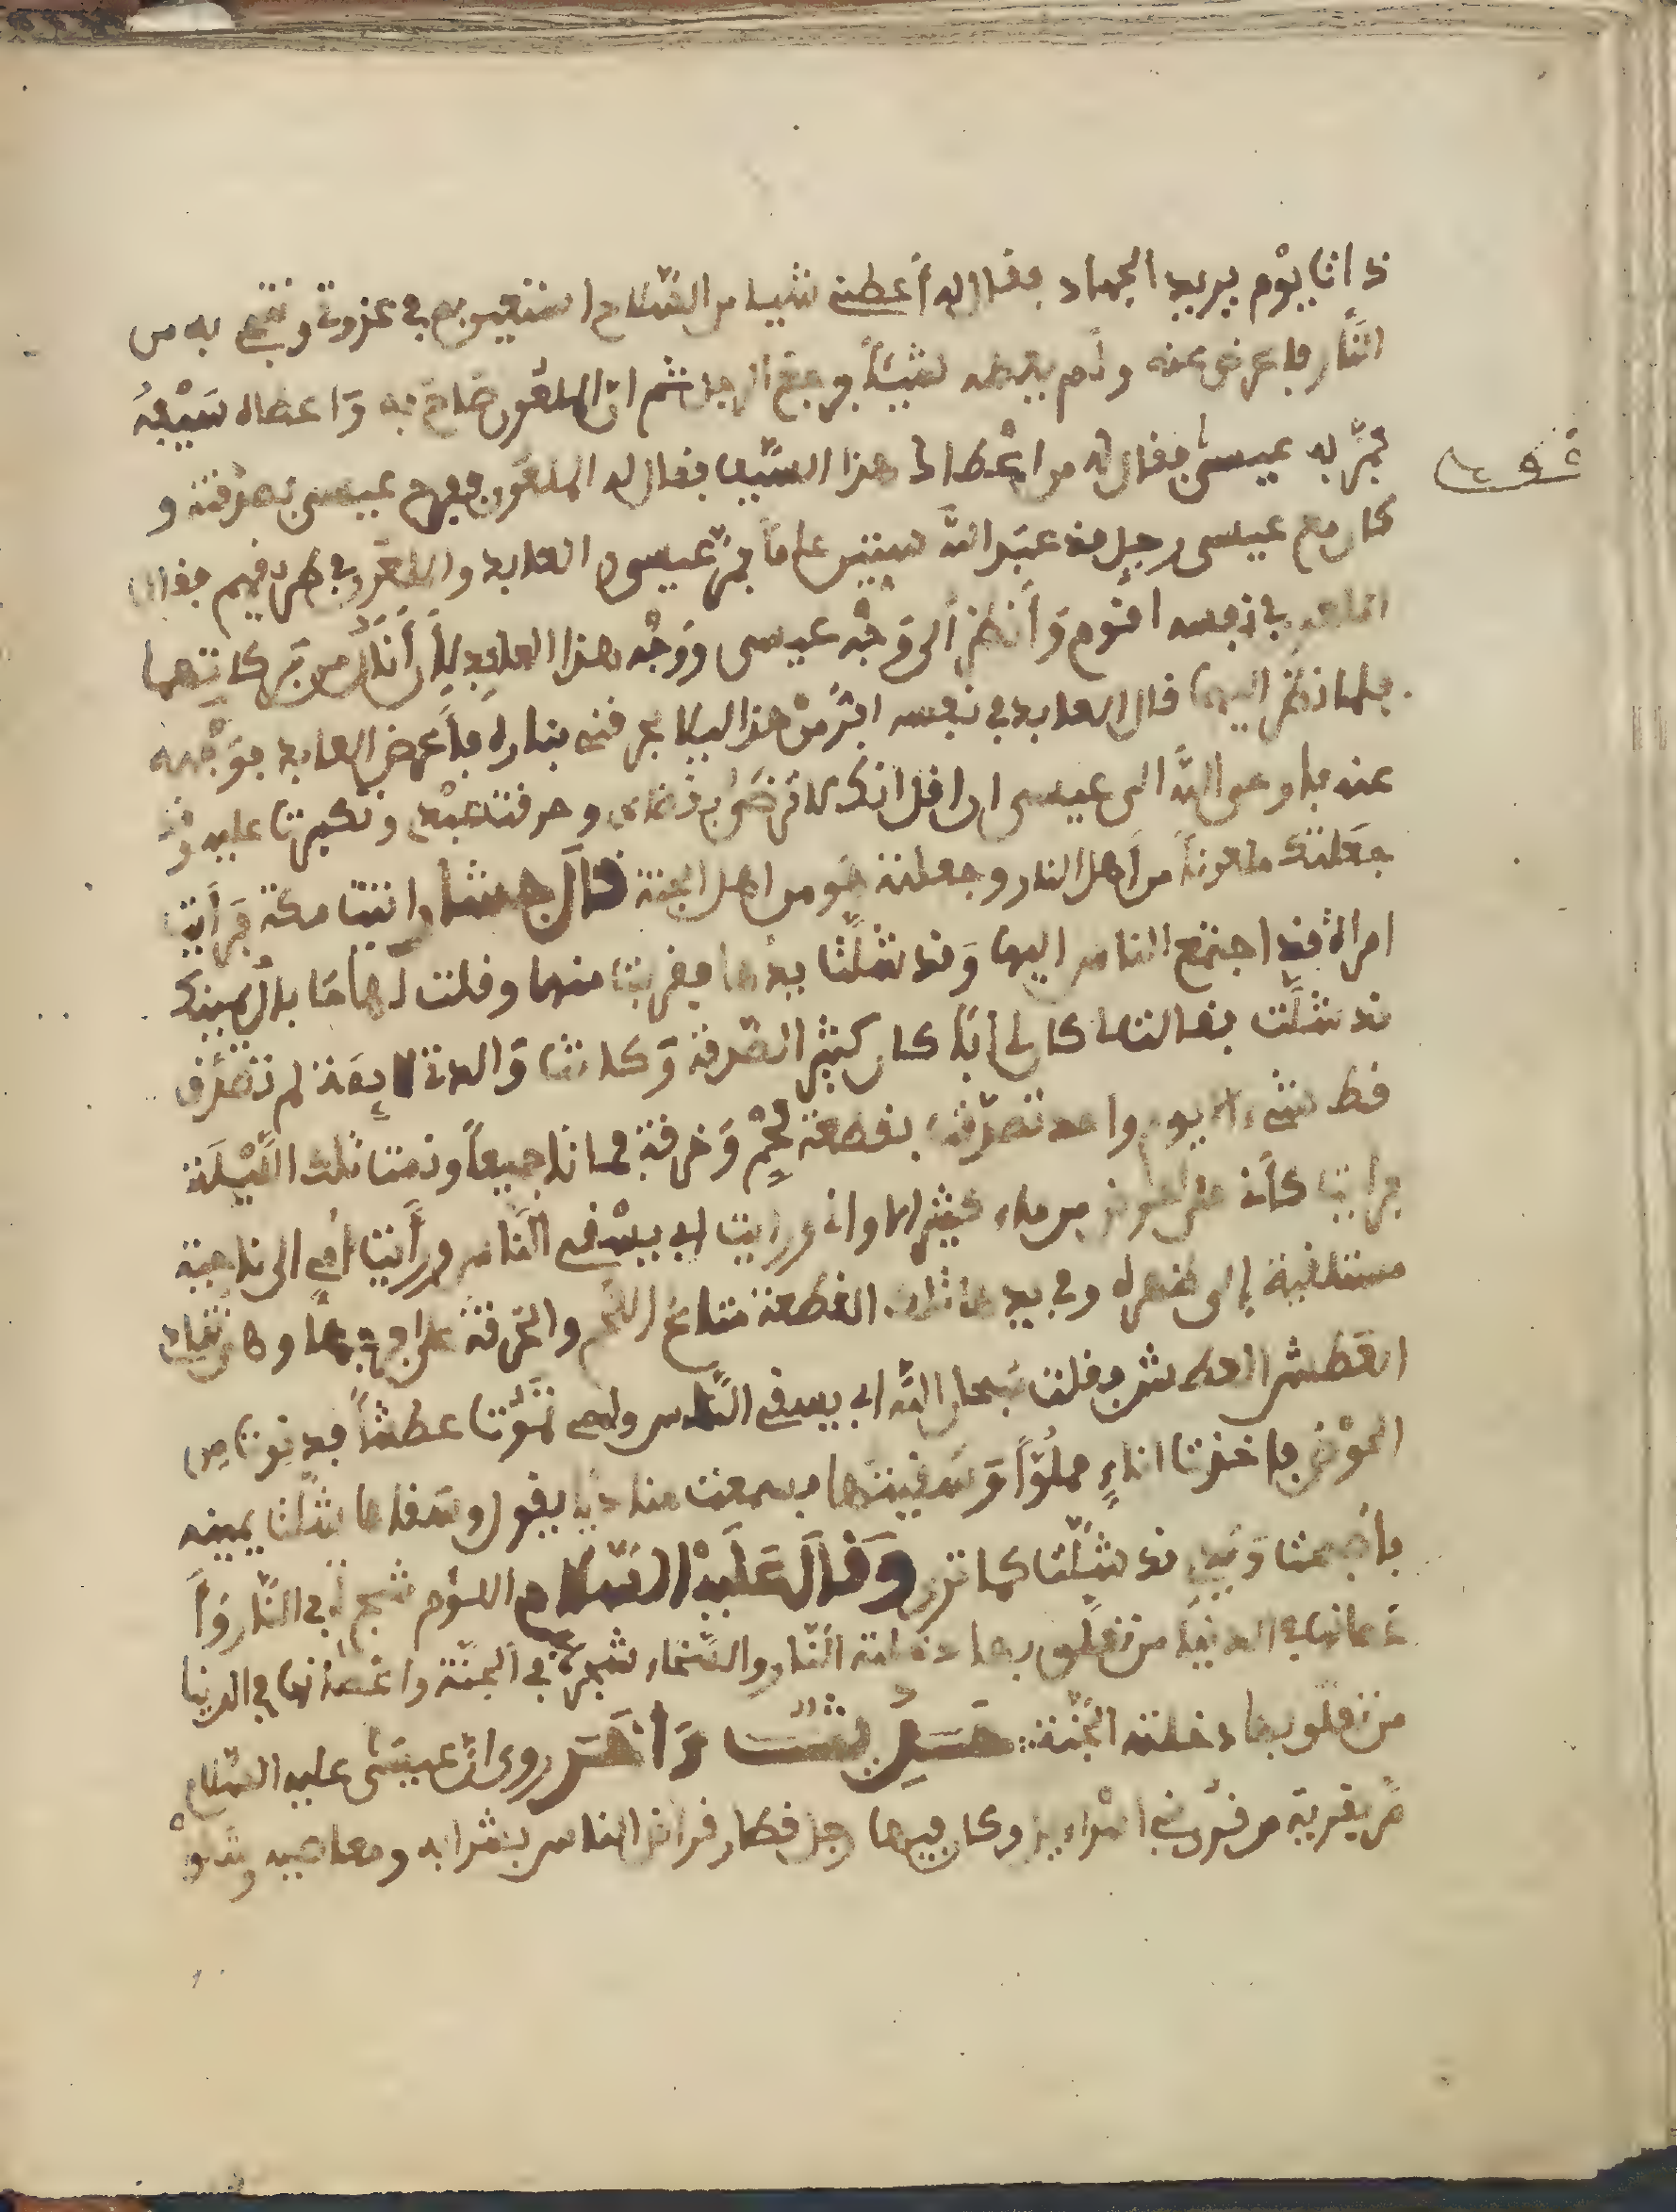 ذات يوم يريد الجهاد فقال له أعطني شيئا من السلاح استعين به في غزوتي وتنجى به من
النار فاعرض عنه ولم يعطه شيئا فرجع الرجل ثم ان الملعون صاح به واعطاه سيفه
فمر به عيسى فقال له من اعطاك هذا السيف فقال له الملعون ففرح عيسى بصدقته و
كان مع عيسى رجل قد عبد الله سبعين عاما فمر عيسى والعابد والملعون في طريقهم فقال
الملعون في نفسه اقوم وأنظر إلى وجه عيسى ووجه هذا العابد لأن أنال من بركاتهما
فلما نظر اليهما قال العابد في نفسه افر من هذا قبل ان يحرقني بناره فأعرض العابد بوجهه
عنه فاوحى الله الى عيسى ان قل له
جعلتك ملعونا من أهل النار وجعلته هو من اهل الجنة قال جئت واتيت مكة فرأيت
امراة قد اجتمع الناس اليها وقد شلت يدها فقربت منها وقلت لها ما بال يمينك
قد شلت فقالت كان لي أبا كان كثير الصدقة وكانت والدتي لم تتصدق
قط بشيء الا يوم واحد تصدقت بقطعة لحم وخرقة فماتا جميعا ونمت تلك الليلة
فرايت كأنه على حوض من ماء كثير الاواني ورايت ابي يسقي الناس ورأيت أمي الى ناحية
مستلقية إلى ظهرها وفي يدها تلك القطعة من اللحم والخرقة على فرجها وهي تقول
العطش العطش فقلت سبحان الله ابي يسقي الناس وامي تموت عطشا فدنوت من
الحوض فاخذت اناء مملوءا وسقيتها فسمعت مناديا يقول من سقاها شلت يمينه
فأصبحت ويدي قد شلت كما ترى وقال عليه السلام اللؤم شجرة في النار وأ
غصانها في الدنيا من تعلق بها دخلته النار والسخاء شجرة في الجنة واغصانها في الدنيا
من تعلق بها دخلته الجنة روى ان عيسى عليه السلام
مر بقرية من قرى بني اسراءيل وكان فيها رجل قصار فراذ الناس بشرابه ومعاصيه